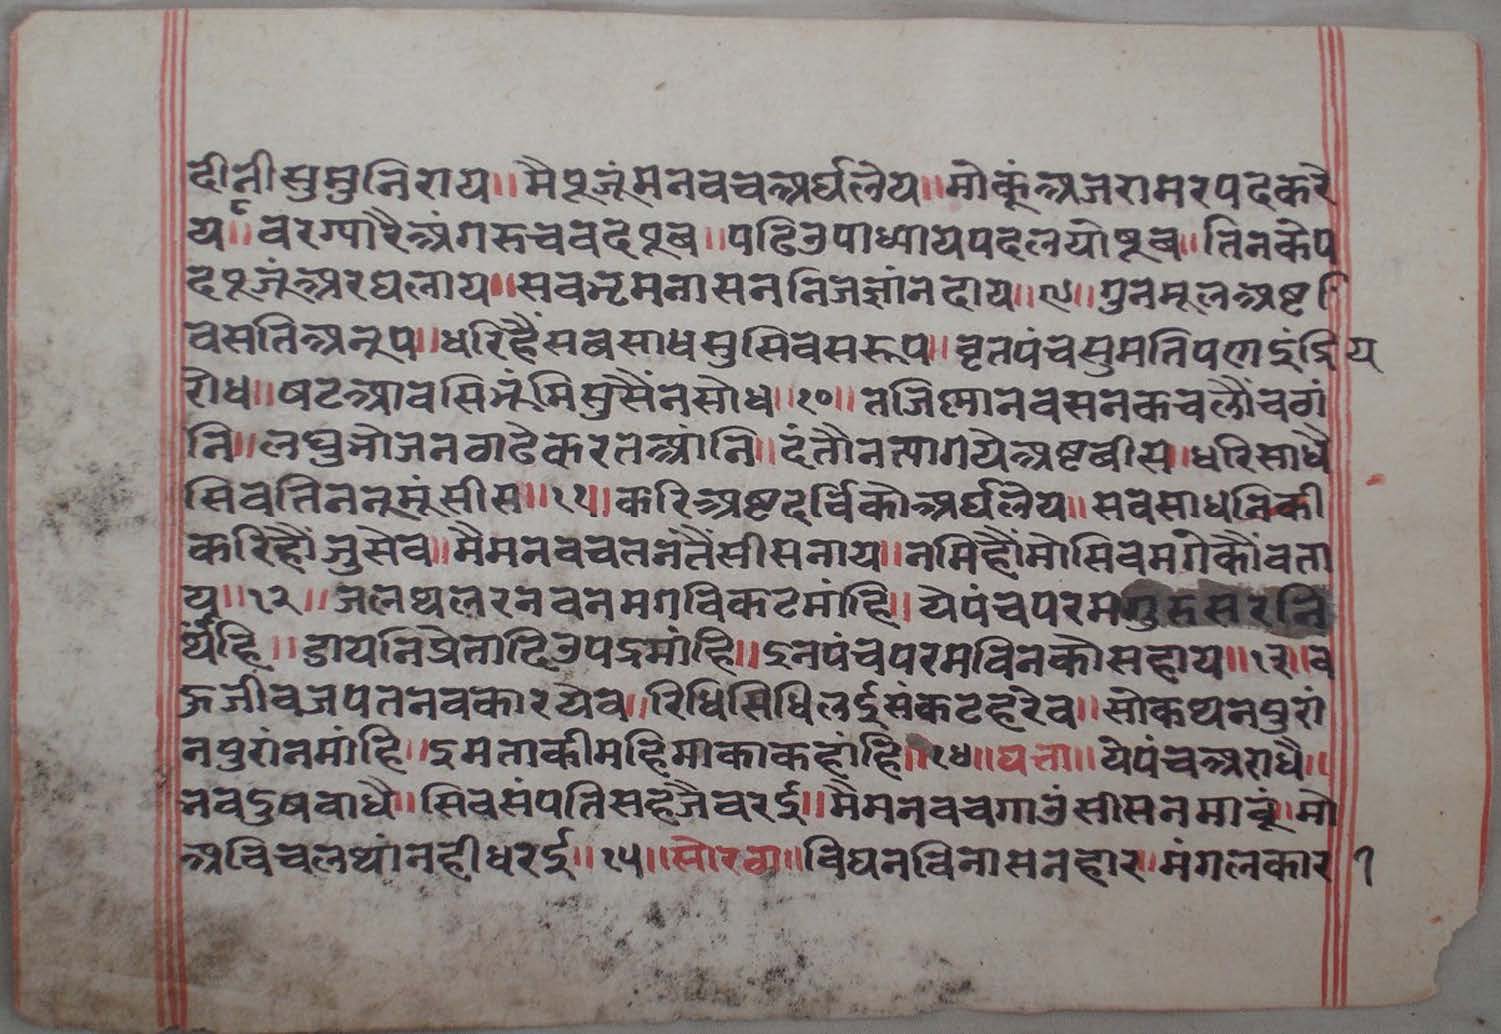 दीनी सुमुनिराय॥ मै पूजूं मनवचअर्घलेय॥ मोकूं अजरामरपदकरे
य॥८ वरग्यारैअंगरुचवदपूब॥ पढिउपाध्यायपदलयोषूब॥ तिनकेप
दपूजूंअरघलाय॥ सबभृमनासननिजज्ञांनदाय॥९॥ गुनमूलअष्ट
वसतिअनूप॥ धरिहैंसबसाधसुसिवसरूप॥ वृतपंचसुमतिपणइंद्रिय
रोध॥ षटआवसिभूंमिसुसैंनसोध॥१०॥ तजिन्हानवसनकचलौंचठां
नि॥ लघुभोजनठाढेकरतआंनि॥ दंतौनत्यागयेअष्टबीस॥ धरिसाधै
सिवतिननमूंसीस॥११॥ करिअष्टदर्विकोअर्घलेय॥ सबसाधनिकी
करिहौंजुसेव॥ मैमनवचतनतैंसीसनाय॥ नमिहौंमोसिवमगकौंवता
य॥१२॥ जलथलरनवनमगविकटमांहि॥ येपंचपरमगुरुसरनि
र्थांहि॥ डायनिप्रेतादिउपद्रमांहि॥ इनपंचपरमविनकोसहाय॥१३॥ व
हजीवजपतनवकारयेव॥ रिधिसिधिलईसंकटहरेव॥ सोकथनपुरां
नपुरांनमांहि॥ इमताकीमहिमाकाकहांहि॥१४॥ घत्ता॥ येपंचअराधै॥
नवदुषबाधै॥ सिवसंपतिसहजैवरई॥ मैमनवचगाउंसीसनमावूं॥ मो
अविचलथांनहीधरई॥१५॥ सोरठा॥ विघनविनासनहार॥ मंगलकार१